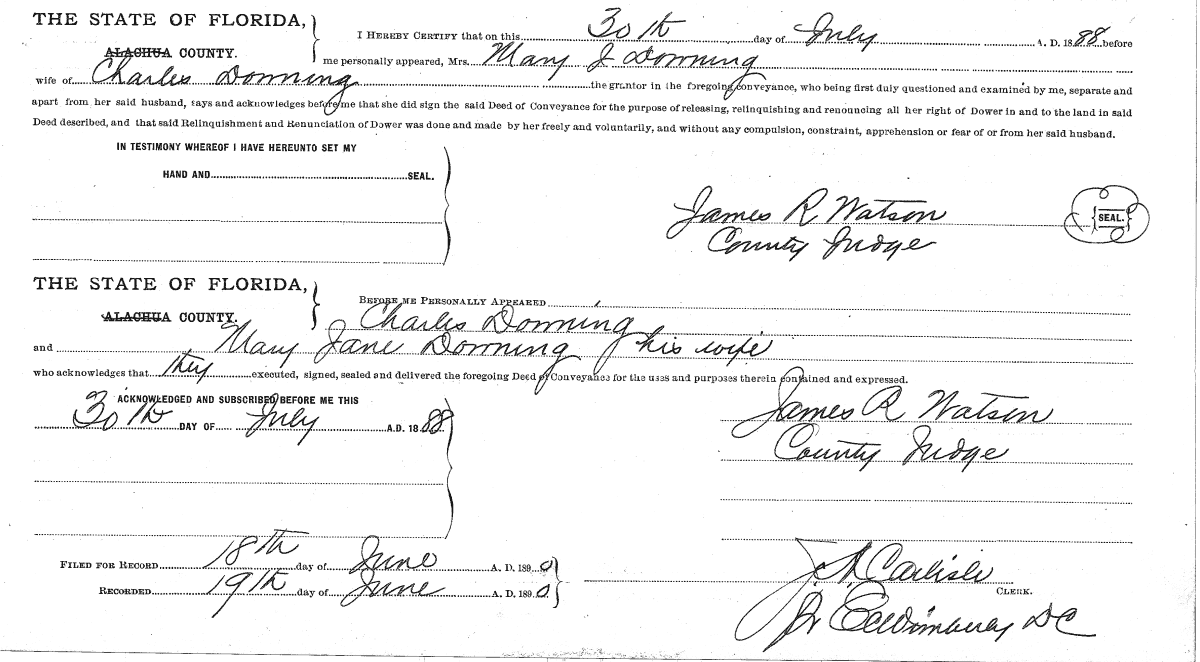 THE STATE OF FLORIDA,
ALACHUA COUNTY.
I HEREBY CERTIFY that on this 30th day of July A. D. 1888 before
me personally appeared, Mrs. Mary J Donning
wife of Charles Donning the grantor in the foregoing conveyance, who being first duly questioned and examined by me, separate and
apart from her said husband, says and acknowledges before me that she did sign the said Deed of Conveyance for the purpose of releasing, relinquishing and renouncing all her right of Dower in and to the land in said
Deed described, and that said Relinquishment and Renunciation of Dower was done and made by her freely and voluntarily, and without any compulsion, constraint, apprehension or fear of or from her said husband.
IN TESTIMONY WHEREOF I HAVE HEREUNTO SET MY
HAND AND SEAL.
James R Watson {SEAL.}
County Judge
THE STATE OF FLORIDA,
ALACHUA COUNTY.
BEFORE ME PERSONALLY APPEARED
Charles Donning
and Mary Jane Donning his wife
who acknowledges that they executed, signed, sealed and delivered the foregoing Deed of Conveyance for the uses and purposes therein contained and expressed.
ACKNOWLEDGED AND SUBSCRIBED BEFORE ME THIS
30th DAY OF July A.D. 1888
James R Watson
County Judge
FILED FOR RECORD 18th day of June A. D. 1890
RECORDED 19th day of June A. D. 1890
Carlisle
CLERK.
DC